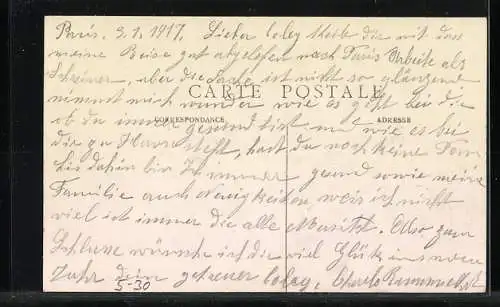 Paris, 3.1.1917. Lieber Coleg Theile dir mit das
meine Reise gut abgelofen nach Paris Arbeite als
Schreiner, aber die Sache ist nicht so glänzend
nimmt mich wunder wie es geht bei dir
CARTE POSTALE
ob du immer gesund bist und wie es bei
CORRESPONDANCE ADRESSE
dir zu Hause steht, hast du noch keine
bis dahin bin Ich immer gesund sowie meine
Familie auch Neuigkeiten weis ich nicht
viel ist immer die alte Also zum
Schlusse wünsche ich dir viel Glück ins neue
Jahr dein getreuer Coleg, Charles
5-30